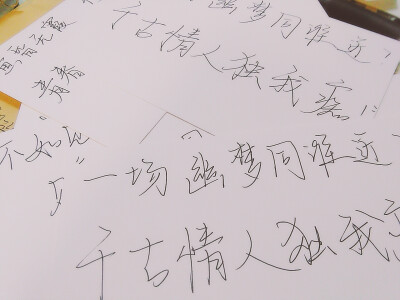 幽梦同谁近
千古情人独我痴
青春
不如
一场幽梦同谁近
千古情人独我